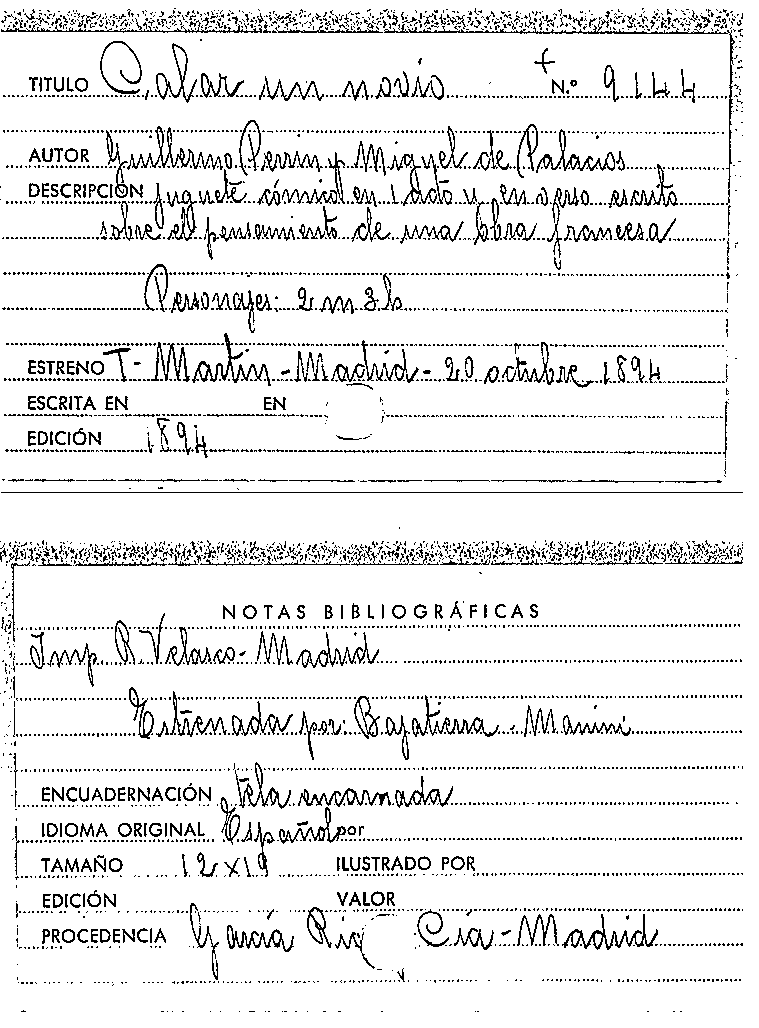 TITULO Calar un novio † N.º 9144
AUTOR Guillermo Perrin y Miguel de Palacios
DESCRIPCIÓN Juguete cómico en 1 acto y en verso escrito
sobre el pensamiento de una obra francesa
Personajes: 2 m 3 h
ESTRENO T- Martin - Madrid - 20 octubre 1894
ESCRITA EN EN
EDICIÓN 1894
NOTAS BIBLIOGRÁFICAS
Imp. R. Velasco - Madrid
Estrenada por: Bajatierra - Manini
ENCUADERNACIÓN tela encarnada
IDIOMA ORIGINAL Español por
TAMAÑO 12 x 19 ILUSTRADO POR
EDICIÓN VALOR
PROCEDENCIA García Cía - Madrid